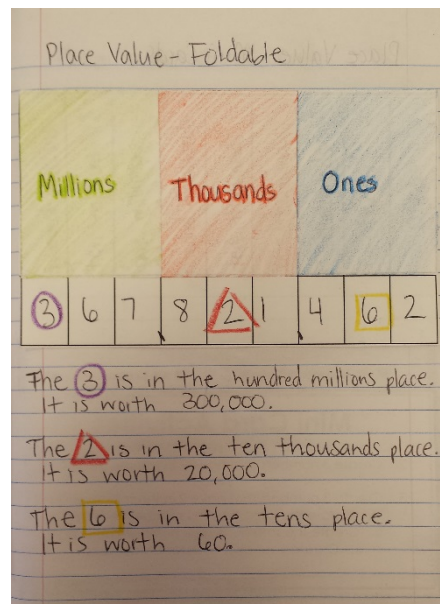 Place Value - Foldable
Millions Thousands Ones
3 6 7, 8 2 1, 4 6 2
The 3 is in the hundred millions place.
It is worth 300,000.
The 2 is in the ten thousands place.
It is worth 20,000.
The 6 is in the tens place.
It is worth 60.